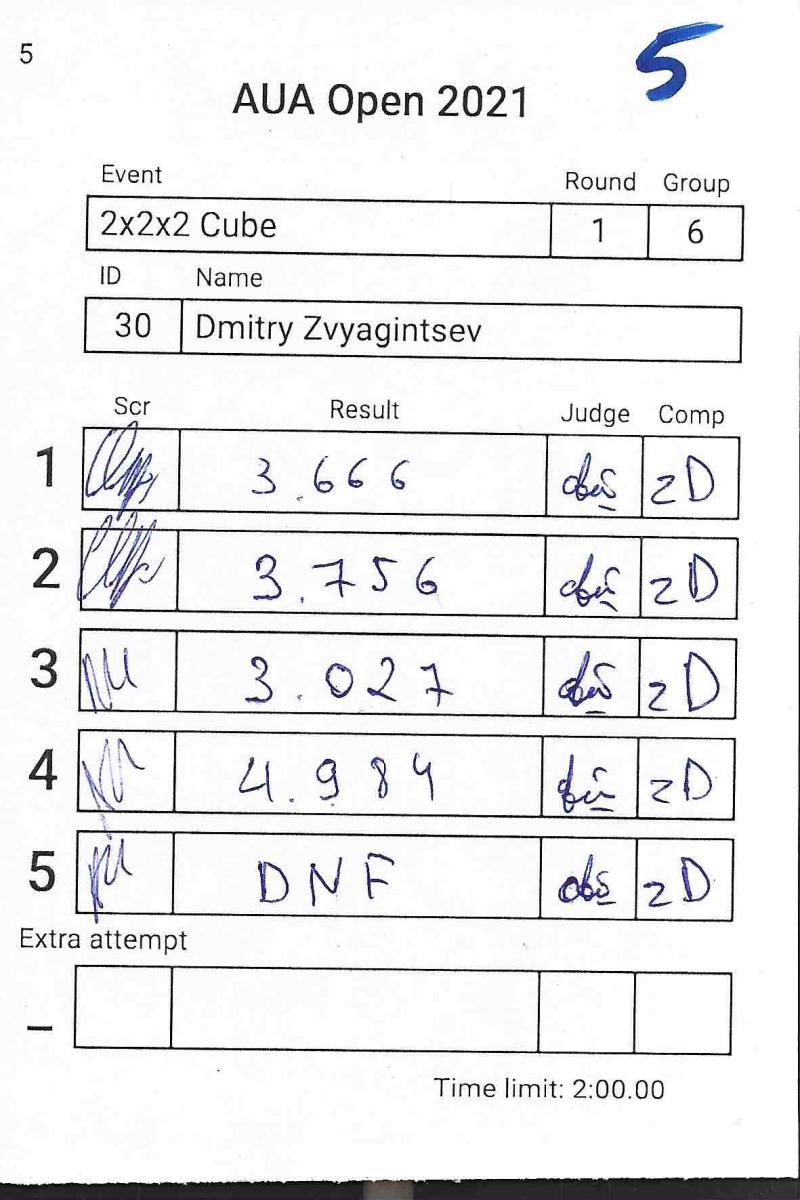 5
5
AUA Open 2021
Event Round Group
2x2x2 Cube 1 6
ID Name
30 Dmitry Zvyagintsev
Scr Result Judge Comp
1 3.666 zD
2 3.756 zD
3 3.027 zD
4 4.984 zD
5 DNF zD
Extra attempt
_
Time limit: 2:00.00